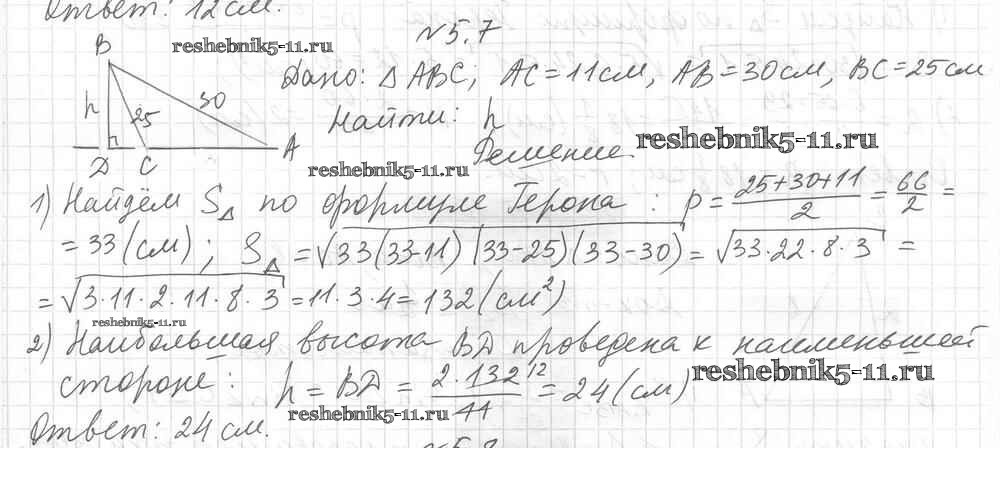 Ответ: 12 см.
№5.7
reshebnik5-11.ru
B
h
25
30
D
C
A
Дано: △ABC; AC=11см, AB=30см, BC=25см
Найти: h
reshebnik5-11.ru
Решение.
reshebnik5-11.ru
1) Найдём S△ по формуле Герона: p = (25+30+11)/2 = 66/2 =
= 33 (см); S△ = √33(33-11)(33-25)(33-30) = √33·22·8·3 =
= √3·11·2·11·8·3 = 11·3·4 = 132 (см²)
reshebnik5-11.ru
2) Наибольшая высота BD проведена к наименьшей
стороне: h = BD = 2·132 12/11 = 24 (см)
reshebnik5-11.ru
reshebnik5-11.ru
Ответ: 24 см.